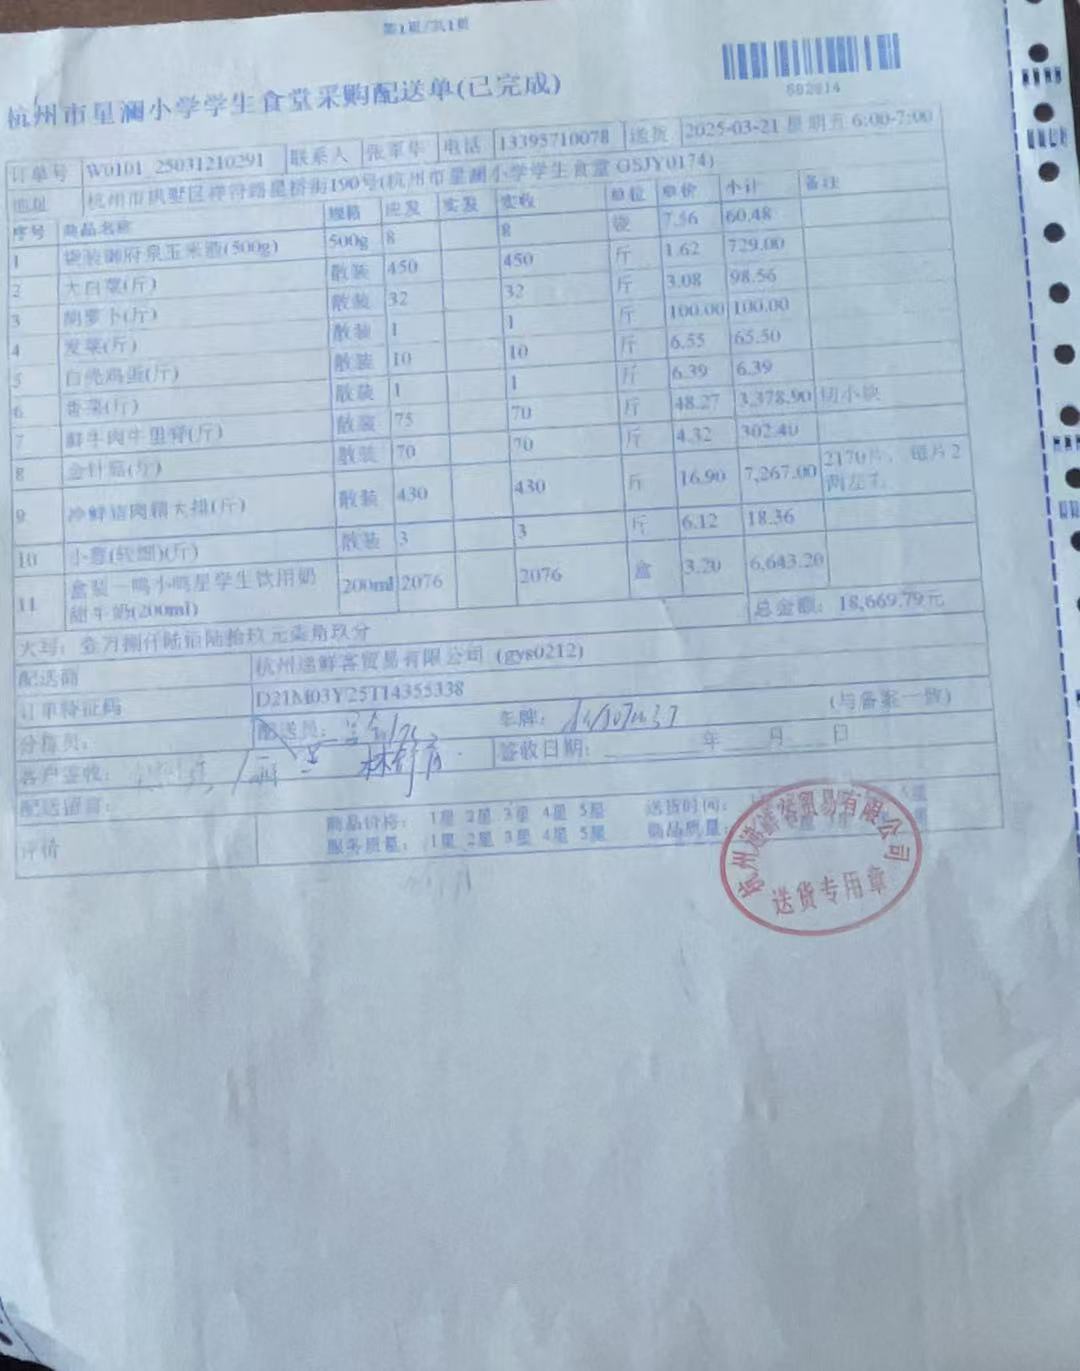 第1页/共1页
692914
杭州市星澜小学学生食堂采购配送单(已完成)
订单号 W0101_25031210291 联系人 张军华 电话 13395710078 送货 2025-03-21 星期五 6:00-7:00
地址 杭州市拱墅区祥符路星桥街190号(杭州市星澜小学学生食堂 GSJY0174)
序号 商品名称 规格 应发 实发 实收 单位 单价 小计 备注
1 袋装御府泉玉米渣(500g) 500g 8 8 袋 7.56 60.48
2 大白菜(斤) 散装 450 450 斤 1.62 729.00
3 胡萝卜(斤) 散装 32 32 斤 3.08 98.56
4 发菜(斤) 散装 1 1 斤 100.00 100.00
5 白壳鸡蛋(斤) 散装 10 10 斤 6.55 65.50
6 香菜(斤) 散装 1 1 斤 6.39 6.39
7 鲜牛肉牛里脊(斤) 散装 75 70 斤 48.27 3,378.90 切小块
8 金针菇(斤) 散装 70 70 斤 4.32 302.40
9 冷鲜猪肉精大排(斤) 散装 430 430 斤 16.90 7,267.00 2170片, 每片2两左右
10 小葱(较细)(斤) 散装 3 3 斤 6.12 18.36
11 盒装一鸣小鸣星学生饮用奶甜牛奶(200ml) 200ml 2076 2076 盒 3.20 6,643.20
总金额: 18,669.79元
大写: 壹万捌仟陆佰陆拾玖元柒角玖分
配送商 杭州递鲜客贸易有限公司 (gys0212)
订单特征码 D21M03Y25T14355338
分拣员: 配送员: 车牌: (与备案一致)
客户签收: 签收日期: 年 月 日
配送留言:
评价 商品价格: 1星 2星 3星 4星 5星 送货时间: 5星
服务质量: 1星 2星 3星 4星 5星 商品质量:
杭州递鲜客贸易有限公司
送货专用章